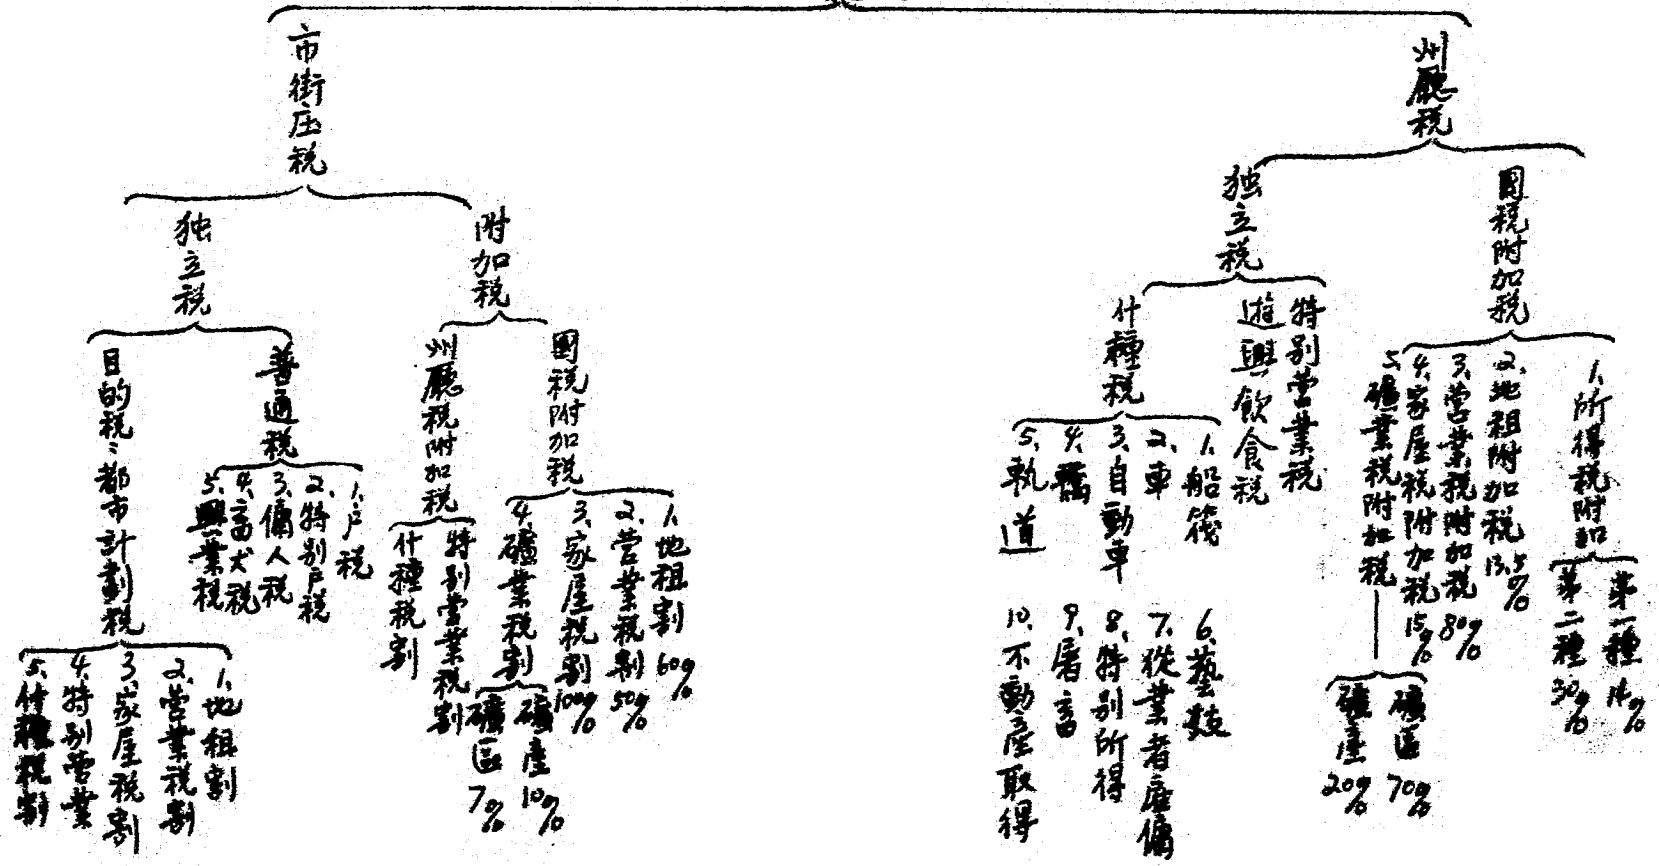 州廳税
國税附加税
1.所得税附加
第一種 14%
第二種 30%
2.地租附加税 13.5%
3.営業税附加税 80%
4.家屋税附加税 15%
5.礦業税附加税
礦區 70%
礦産 20%
独立税
特别营業税
遊興飲食税
什種税
1.船筏
2.車
3.自動車
4.
5.軌道
6.藝妓
7.從業者雇傭
8.特别所得
9.屠畜
10.不動産取得
市街庄税
附加税
國税附加税
1.地租割 60%
2.営業税割 50%
3.家屋税割 100%
4.礦業税割
礦産 10%
礦區 7%
州廳税附加税
特别営業税割
什種税割
独立税
普通税
1.戸税
2.特别戸税
3.傭人税
4.畜犬税
5.興業税
目的税:都市計劃税
1.地租割
2.营業税割
3.家屋税割
4.特别营業
5.什種税割